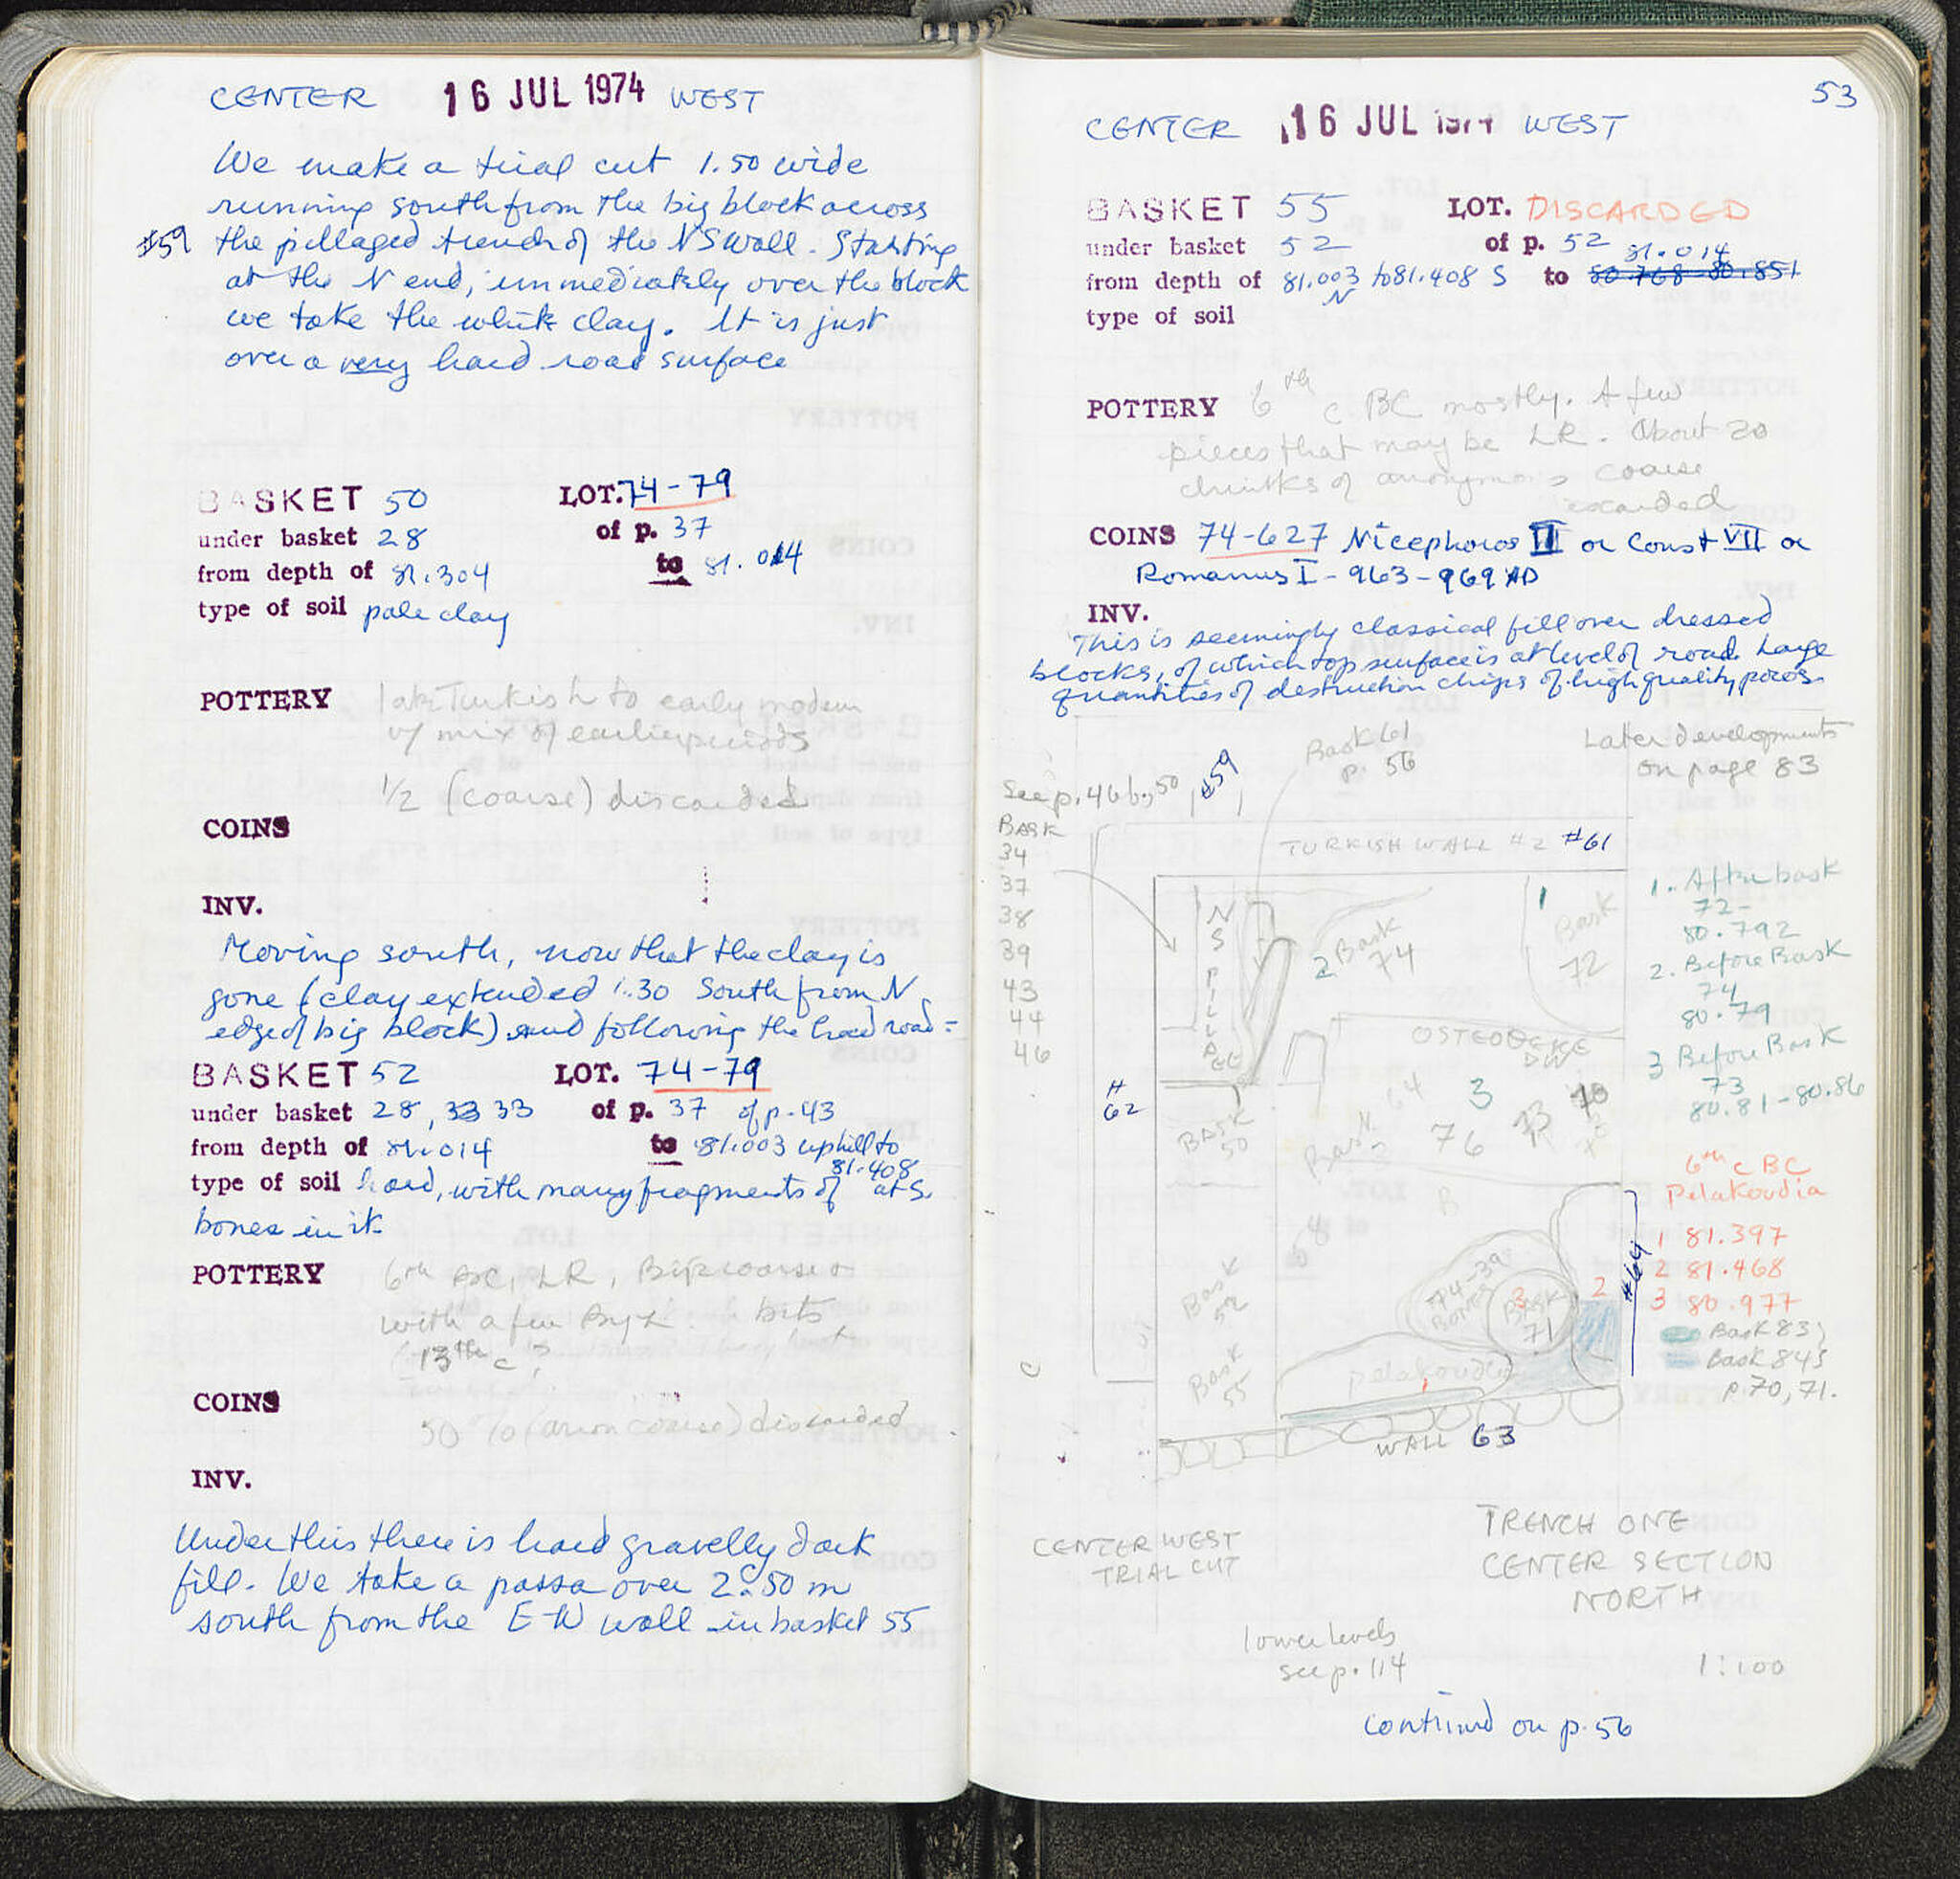 CENTER 16 JUL 1974 WEST
We make a trial cut 1.50 wide
running south from the big block across
#59 the pillaged trench of the NS wall. Starting
at the N end, immediately over the block
we take the white clay. It is just
over a very hard road surface
BASKET 50 LOT. 74-79
under basket 28 of p. 37
from depth of 81.304 to 81.014
type of soil pale clay
POTTERY late Turkish to early modern
w/ mix of earlier periods
1/2 (coarse) discarded
COINS
INV.
Moving south, now that the clay is
gone (clay extended 1.30 South from N
edge of big block) and following the hard road =
BASKET 52 LOT. 74-79
under basket 28, 33 33 of p. 37 of p. 43
from depth of 81.014 to 81.003 uphill to
81.408
type of soil hard, with many fragments of at S.
bones in it
POTTERY 6th BC, LR, coarse
with a few Byz. bits
(13th c?
COINS
50% (anon coarse) discarded
INV.
Under this there is hard gravelly dark
fill. We take a passa over 2.50 m
south from the E-W wall in basket 55
53
CENTER 16 JUL 1974 WEST
BASKET 55 LOT. DISCARDED
under basket 52 of p. 52
81.014
from depth of 81.003 to 81.408 S to 80.768-80.851
N
type of soil
POTTERY 6th c BC mostly. A few
pieces that may be LR. About 20
chunks of anonymous coarse
COINS 74-627 Nicephoros II or Const VII or
Romanus I - 963-969 AD
INV.
This is seemingly classical fill over dressed
blocks, of which top surface is at level of road. Large
quantities of destruction chips of high quality poros.
Bask 61
p. 56
Later developments
on page 83
See p. 46 b, 50
#59
BASK
34
37
38
39
43
44
46
TURKISH WALL #2 #61
NS PILLAGE
2 Bask
74
1
Bask
72
1. After bask
72 -
80.792
2. Before Bask
74
80.79
3 Before Bask
73
80.81-80.86
OSTEOTHEKE
#
62
BASK
50
64
3
76
73
70
Bask
52
68
74-39
BONES
3
BASK
71
2
#64
6th c BC
Pelakoudia
1 81.397
2 81.468
3 80.977
Bask 83
Bask 84
p. 70, 71.
Bask
55
pelakoudia
1
WALL 63
CENTER WEST
TRIAL CUT
TRENCH ONE
CENTER SECTION
NORTH
lower levels
see p. 114
1:100
continued on p. 56